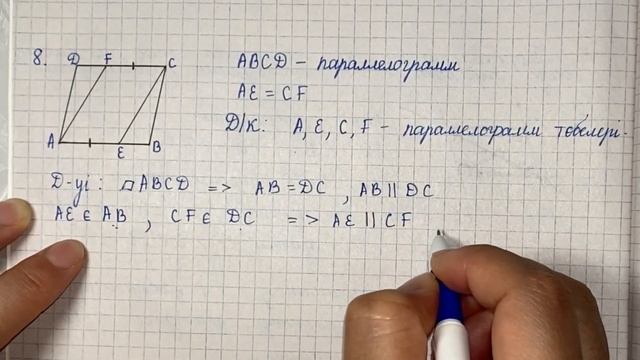 8.
D F C
A E B
ABCD – параллелограмм
AE = CF
Д/К: A, E, C, F – параллелограмм төбелері.
Д-уі: ▱ABCD => AB = DC , AB || DC
AE ∈ AB , CF ∈ DC => AE || CF